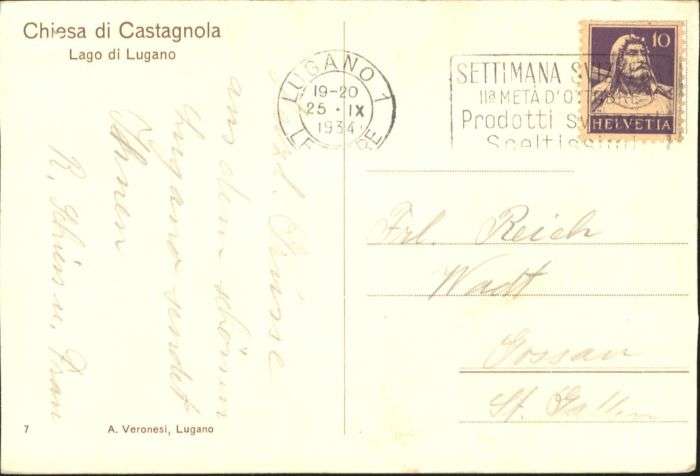 Chiesa di Castagnola
Lago di Lugano
LUGANO 1
19-20
25 · IX
1934
SETTIMANA SVIZ
IIª METÀ D'OTTOBRE
Prodotti sv
Sceltissimi
10
HELVETIA
Grüsse
aus dem schönen
Lugano sendet
Ihnen
R. u. Frau
Frl. Reich
Wadt
Gossau
St. Gallen
7
A. Veronesi, Lugano